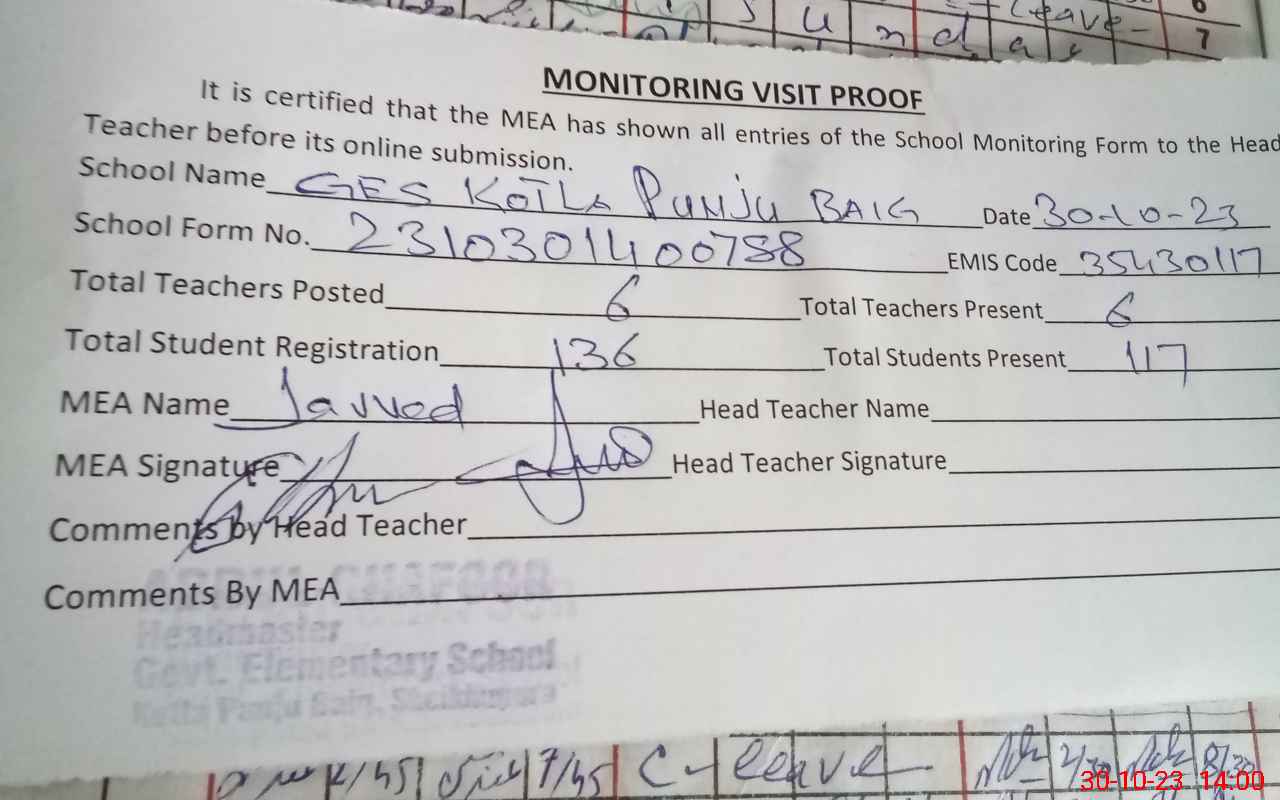 Leave-
6
S u n d a y
7
MONITORING VISIT PROOF
It is certified that the MEA has shown all entries of the School Monitoring Form to the Head
Teacher before its online submission.
School Name GES KOTLA PUNJU BAIG Date 30-10-23
School Form No. 2310301400788 EMIS Code 35430117
Total Teachers Posted 6 Total Teachers Present 6
Total Student Registration 136 Total Students Present 117
MEA Name Javved Head Teacher Name
MEA Signature Head Teacher Signature
Comments by Head Teacher
Comments By MEA
ABDUL GHAFOOR
Headmaster
Govt. Elementary School
Kotla Panju Baig, Sheikhupura
7/45 C-leave- 8/20
30-10-23 14:00